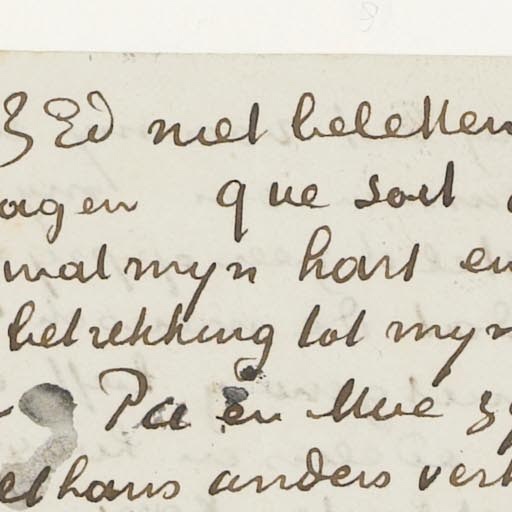 ZEd niet beletten
agen que sort
wat myn hart en
betrekking tot myn
Pa en Mve zy
elhans anders vert